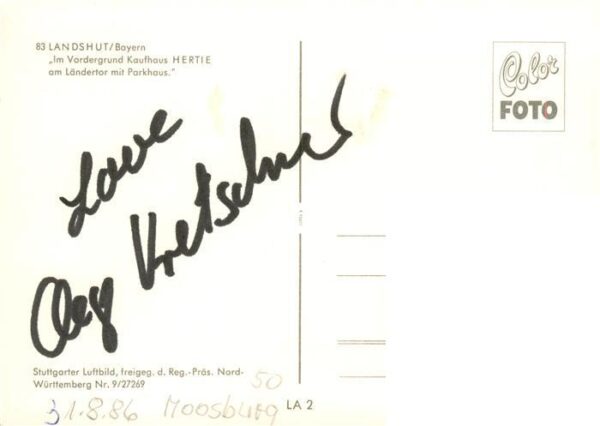 83 LANDSHUT/Bayern
„Im Vordergrund Kaufhaus HERTIE
am Ländertor mit Parkhaus."
Color
FOTO
Love
Kretschmer
Stuttgarter Luftbild, freigeg. d. Reg.-Präs. Nord-
Württemberg Nr. 9/27269
50
31.8.86 Moosburg
LA 2